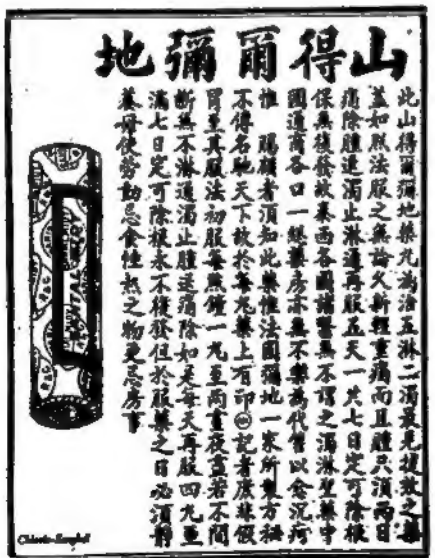 山得爾彌地
此山得爾彌地藥丸為治五淋二濁最見捷效之藥
蓋如照法服之無論久新輕重痛而且腫只須兩日
痛除腫退濁止淋通再服五天一共七日定可除根
保無復發故泰西各國諸醫無不謂之濁淋聖藥中
國通商各口一經藥房亦無不樂為代售以愈沉疴
惟 賜顧者須知此藥惟法國彌地一家所製方秘
不傳名馳天下故於每丸藥上有印記者庶非假
冒至其服法初服每點鐘一丸至兩晝夜若不間
斷無不淋通濁止腫退痛除如是每天再服四丸至
滿七日定可除根永不復發但於服藥之日必須靜
養毋使勞動忌食性熱之物更忌房事
SANTAL MIDY